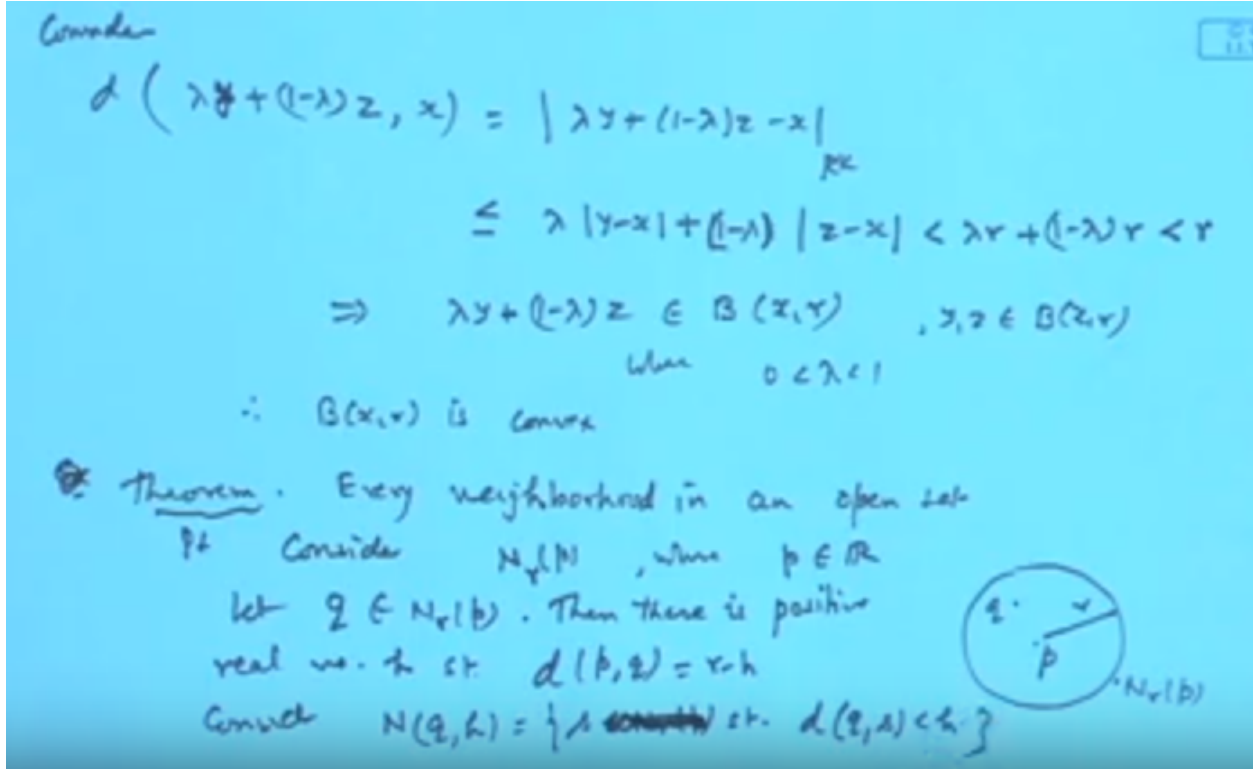 Consider
d ( λy + (1-λ) z , x ) = | λy + (1-λ)z - x |
R^k
≤ λ |y-x| + (1-λ) | z-x | < λr + (1-λ) r < r
⇒ λy + (1-λ) z ∈ B (x, r) , y, z ∈ B(x, r)
when 0 < λ < 1
∴ B(x, r) is convex
Theorem. Every neighborhood in an open set
Pf Consider N_r(p) , where p ∈ R
let q ∈ N_r(p) . Then there is positive
real no. h st. d (p, q) = r-h
q r
p
N_r(p)
N(q, h) = { s st. d (q, s) < h }